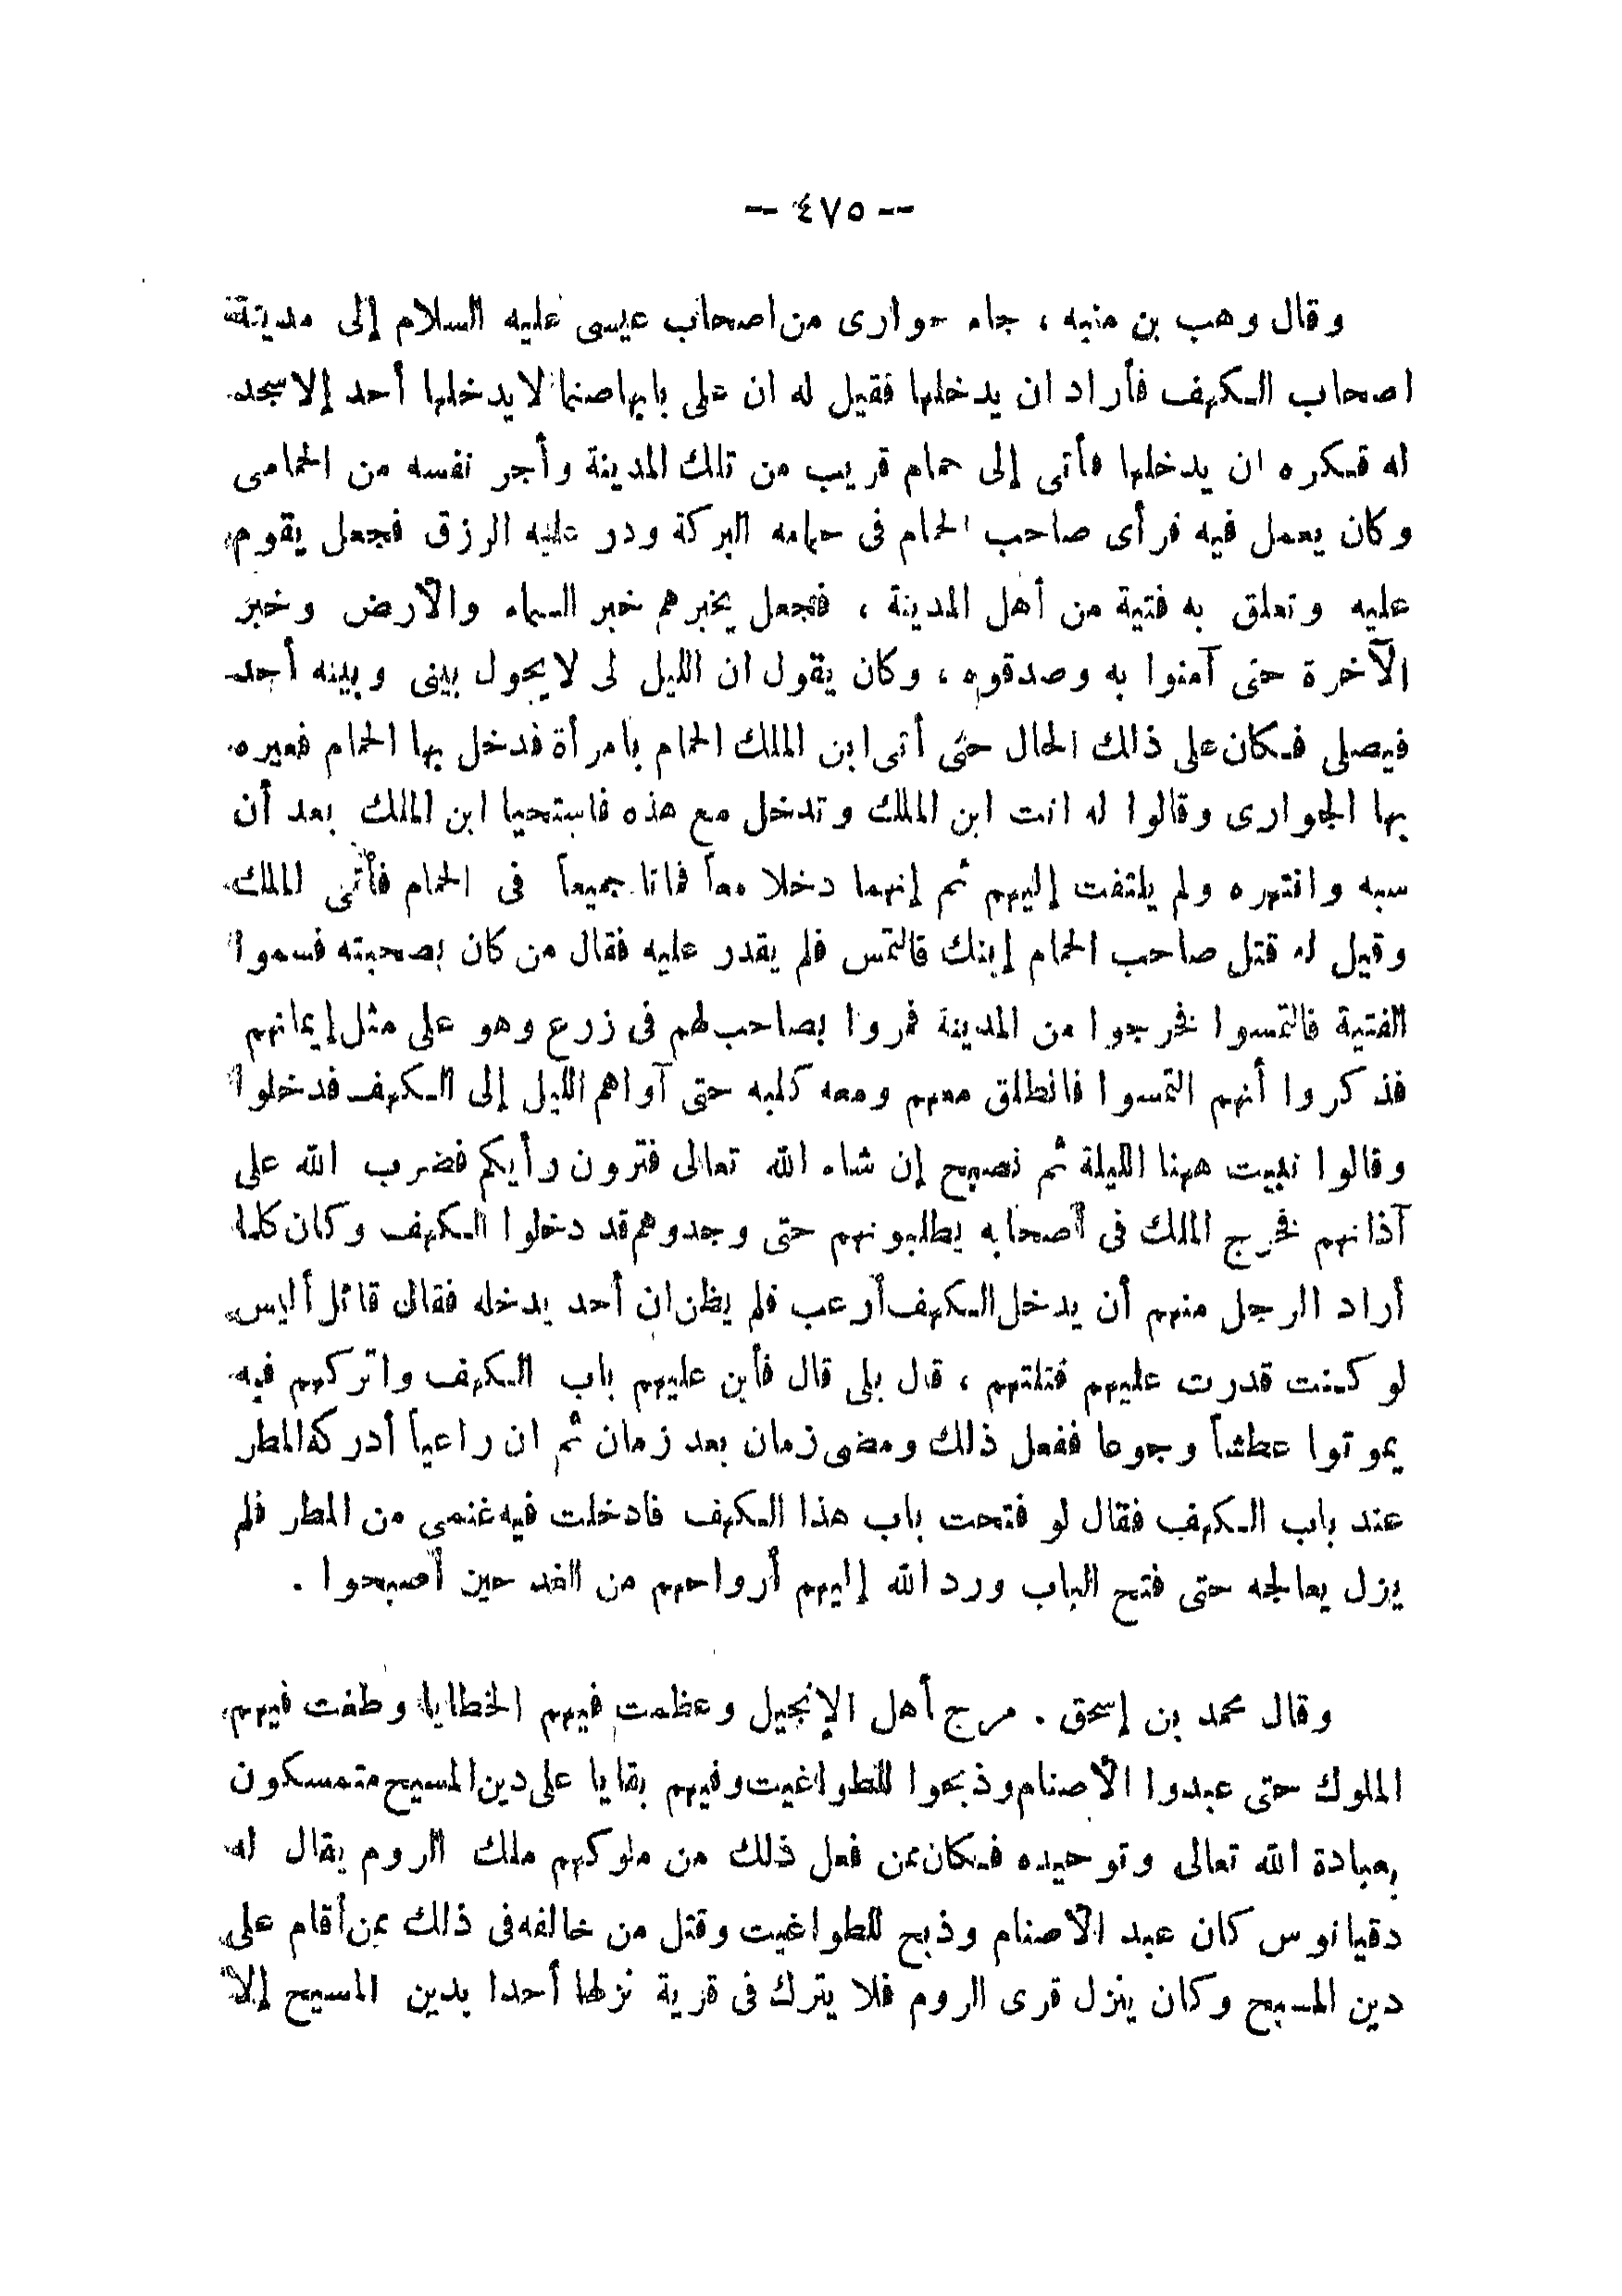 -- ٤٧٥ --
وقال وهب بن منبه ، جاء حوارى من اصحاب عيسى عليه السلام إلى مدينة
اصحاب الكهف فأراد ان يدخلها فقيل له ان على بابها صنما لا يدخلها أحد إلا سجد
له فكره ان يدخلها فأتى إلى حمام قريب من تلك المدينة وأجر نفسه من الحمامى
وكان يعمل فيه فرأى صاحب الحمام فى حمامه البركة ودر عليه الرزق فجعل يقوم
عليه وتعلق به فتية من أهل المدينة ، فجعل يخبرهم خبر السماء والأرض وخبر
الآخرة حتى آمنوا به وصدقوه ، وكان يقول ان الليل لى لا يحول بينى وبينه أحد
فيصلى فكان على ذلك الحال حتى أتى ابن الملك الحمام بامرأة فدخل بها الحمام فعيره
بها الجوارى وقالوا له انت ابن الملك وتدخل مع هذه فاستحيا ابن الملك بعد أن
سبه وانتهره ولم يلتفت إليهم ثم إنهما دخلا معاً فماتا جميعاً فى الحمام فأتى الملك
وقيل له قتل صاحب الحمام إبنك فالتمس فلم يقدر عليه فقال من كان بصحبته فسموا
الفتية فالتمسوا فخرجوا من المدينة فمروا بصاحب لهم فى زرع وهو على مثل إيمانهم
فذكروا أنهم التمسوا فانطلق معهم ومعه كلبه حتى آواهم الليل إلى الكهف فدخلوا
وقالوا نبيت ههنا الليلة ثم نصبح إن شاء الله تعالى فترون رأيكم فضرب الله على
آذانهم فخرج الملك فى أصحابه يطلبونهم حتى وجدوهم قد دخلوا الكهف وكان كلما
أراد الرجل منهم أن يدخل الكهف أرعب فلم يظن ان أحد يدخله فقال قائل أليس
لو كنت قدرت عليهم قتلتهم ، قال بلى قال فأبن عليهم باب الكهف واتركهم فيه
يموتوا عطشاً وجوعا ففعل ذلك ومضى زمان بعد زمان ثم ان راعياً أدركه المطر
عند باب الكهف فقال لو فتحت باب هذا الكهف فادخلت فيه غنمى من المطر فلم
يزل يعالجه حتى فتح الباب ورد الله إليهم أرواحهم من الغد حين أصبحوا .
وقال محمد بن إسحق . مرج أهل الإنجيل وعظمت فيهم الخطايا وطغت فيهم
الملوك حتى عبدوا الأصنام وذبحوا للطواغيت وفيهم بقايا على دين المسيح متمسكون
بعبادة الله تعالى وتوحيده فكان ممن فعل ذلك من ملوكهم ملك الروم يقال له
دقيانوس كان عبد الأصنام وذبح للطواغيت وقتل من خالفه فى ذلك ممن أقام على
دين المسيح وكان ينزل قرى الروم فلا يترك فى قرية نزلها أحدا بدين المسيح إلا